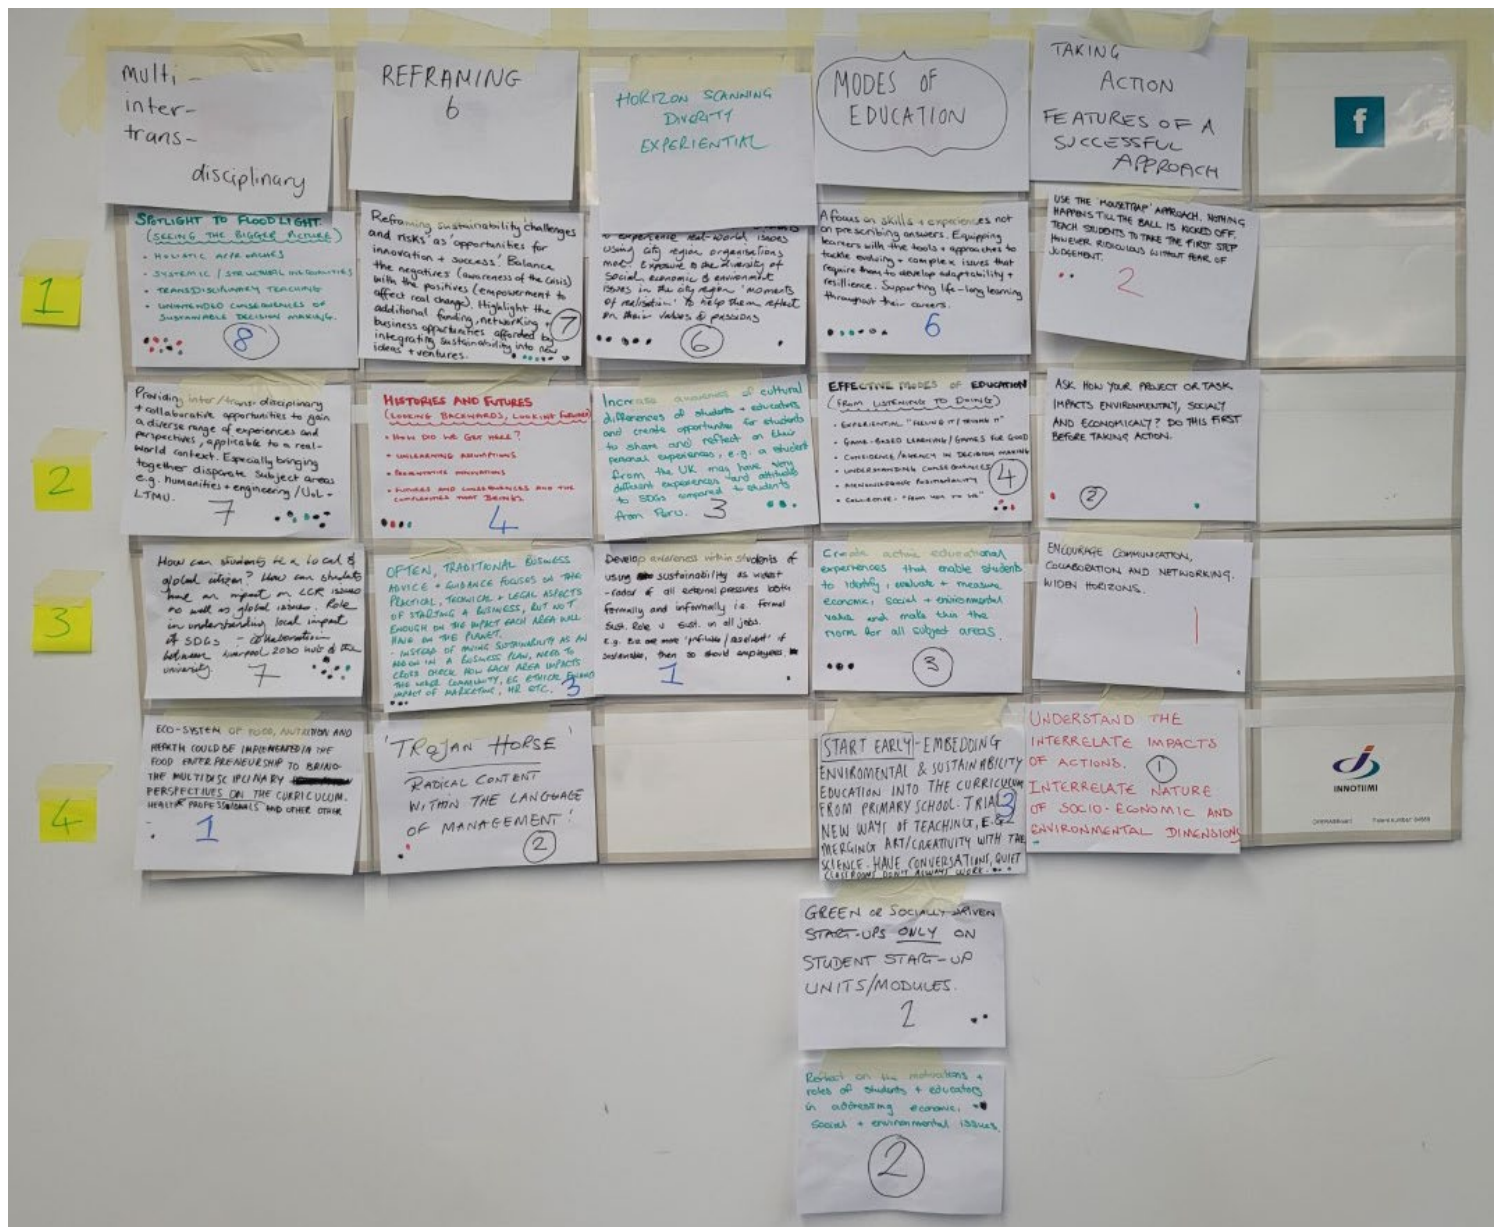 multi-
inter-
trans-
disciplinary
REFRAMING
6
HORIZON SCANNING
DIVERSITY
EXPERIENTIAL
MODES OF
EDUCATION
TAKING
ACTION
FEATURES OF A
SUCCESSFUL
APPROACH
f
1
SPOTLIGHT TO FLOODLIGHT.
(SEEING THE BIGGER PICTURE)
• HOLISTIC APPROACHES
• SYSTEMIC / STRUCTURAL INEQUALITIES
• TRANSDISCIPLINARY TEACHING
• UNINTENDED CONSEQUENCES OF
SUSTAINABLE DECISION MAKING.
8
Reframing sustainability 'challenges
and risks' as 'opportunities for
innovation + success'. Balance
the negatives (awareness of the crisis)
with the positives (empowerment to
affect real change). Highlight the
additional funding, networking +
business opportunities afforded by
integrating sustainability into new
ideas + ventures.
7
experience real-world issues
using city region organisations
more. Exposure to the diversity of
social economic & environment
issues in the city region 'moments
of realisation' to help them reflect
on their values & passions
6
A focus on skills + experiences not
on prescribing answers. Equipping
learners with the tools + approaches to
tackle evolving + complex issues that
require them to develop adaptability +
resillience. Supporting life-long learning
throughout their careers.
6
USE THE 'MOUSETRAP' APPROACH. NOTHING
HAPPENS TILL THE BALL IS KICKED OFF.
TEACH STUDENTS TO TAKE THE FIRST STEP
HOWEVER RIDICULOUS WITHOUT FEAR OF
JUDGEMENT.
2
2
Providing inter/trans-disciplinary
+ collaborative opportunities to gain
a diverse range of experiences and
perspectives, applicable to a real-
world context. Especially bringing
together disparate subject areas
e.g. humanities + engineering / UoL -
LJMU.
7
HISTORIES AND FUTURES
(LOOKING BACKWARDS, LOOKING FORWARD)
• HOW DID WE GET HERE?
• UNLEARNING ASSUMPTIONS
• INNOVATIONS
• FUTURES AND CONSEQUENCES AND THE
COMPLEXITIES THAT BRINGS
4
Increase awareness of cultural
differences of students + educators
and create opportunities for students
to share and reflect on their
personal experiences, e.g. a student
from the UK may have very
different experiences and attitudes
to SDGs compared to students
from Peru.
3
EFFECTIVE MODES OF EDUCATION
(FROM LISTENING TO DOING)
• EXPERIENTIAL "FEELING IT / TRYING IT"
• GAME-BASED LEARNING / GAMES FOR GOOD
• CONFIDENCE/AGENCY IN DECISION MAKING
• UNDERSTANDING CONSEQUENCES
• ACKNOWLEDGE POSITIONALITY
• COLLECTIVE - "FROM YOU TO WE"
4
ASK HOW YOUR PROJECT OR TASK
IMPACTS ENVIRONMENTALY, SOCIALY
AND ECONOMICALY? DO THIS FIRST
BEFORE TAKING ACTION.
2
3
How can students be a local &
global citizen? How can students
have an impact on LCR issues
as well as global issues. Role
in understanding local impact
of SDGs - collaboration
between Liverpool 2030 hub & the
university.
7
OFTEN, TRADITIONAL BUSINESS
ADVICE + GUIDANCE FOCUSES ON THE
PRACTICAL, TECHNICAL + LEGAL ASPECTS
OF STARTING A BUSINESS, BUT NOT
ENOUGH ON THE IMPACT EACH AREA WILL
HAVE ON THE PLANET.
- INSTEAD OF HAVING SUSTAINABILITY AS AN
ADD ON IN A BUSINESS PLAN, NEED TO
CROSS CHECK HOW EACH AREA IMPACTS
THE WIDER COMMUNITY, EG ETHICAL
IMPACT OF MARKETING, HR ETC.
3
Develop awareness within students of
using sustainability as widest
-radar of all external pressures both
formally and informally i.e. formal
sust. Role v sust. in all jobs.
e.g. Biz are more 'profitable / resilient' if
sustainable, then so should employees.
1
Create active educational
experiences that enable students
to identify, evaluate + measure
economic, social + environmental
value and make this the
norm for all subject areas.
3
ENCOURAGE COMMUNICATION,
COLLABORATION AND NETWORKING.
WIDEN HORIZONS.
1
4
ECO-SYSTEM OF FOOD, NUTRITION AND
HEALTH COULD BE IMPLEMENTED IN THE
FOOD ENTERPRENEURSHIP TO BRING
THE MULTIDISCIPLINARY
PERSPECTIVES ON THE CURRICULUM.
HEALTH PROFESSIONALS AND OTHER OTHER
1
'TROJAN HORSE'
RADICAL CONTENT
WITHIN THE LANGUAGE
OF MANAGEMENT!
2
START EARLY - EMBEDDING
ENVIROMENTAL & SUSTAINABILITY
EDUCATION INTO THE CURRICULUM
FROM PRIMARY SCHOOL. TRIAL
NEW WAYS OF TEACHING, E.G.
MERGING ART/CREATIVITY WITH THE
SCIENCE. HAVE CONVERSATIONS, QUIET
CLASSROOMS DON'T ALWAYS WORK.
3
UNDERSTAND THE
INTERRELATE IMPACTS
OF ACTIONS.
1
INTERRELATE NATURE
OF SOCIO-ECONOMIC AND
ENVIRONMENTAL DIMENSIONS
INNOTIIMI
GREEN OR SOCIALLY-DRIVEN
START-UPS ONLY ON
STUDENT START-UP
UNITS/MODULES.
2
Reflect on the motivations +
roles of students + educators
in addressing economic,
social + environmental issues.
2